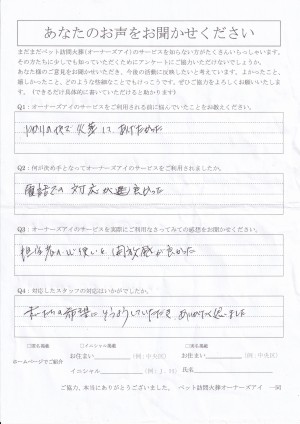 あなたのお声をお聞かせください
まだまだペット訪問火葬(オーナーズアイ)のサービスを知らない方がたくさんいらっしゃいます。
その方たちに少しでも知っていただくためにアンケートにご協力いただけないでしょうか。
あなた様のご意見をお聞かせいただき、今後の活動に反映したいと考えています。よかったこと、
嬉しかったこと、どのような些細なことでもけっこうです。ぜひご協力をよろしくお願いいたしま
す。(できるだけ具体的に書いていただけると助かります)
Q1:オーナーズアイのサービスをご利用される前に悩んでいたことをお教えください。
火葬して あげたかった
Q2:何が決め手となってオーナーズアイのサービスをご利用されましたか。
電話での 対応が 良かった
Q3:オーナーズアイのサービスを実際にご利用なさってみての感想をお聞かせください。
担当者の心使いと 開放感が良かった
Q4:対応したスタッフの対応はいかがでしたか。
私たちの希望に していただき ありがたく思いました
□匿名掲載 □イニシャル掲載 □実名掲載
ホームページでご紹介
お住まい (例:中央区) お住まい (例:中央区)
イニシャル (例:J.H) 氏名
ご協力、本当にありがとうございました。 ペット訪問火葬オーナーズアイ 一同